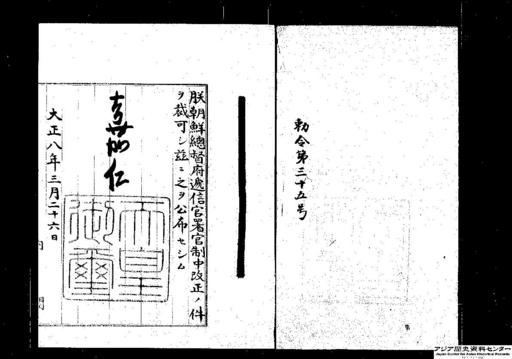 勅令第三十五号
朕朝鮮總督府逓信官署官制中改正ノ件
ヲ裁可シ茲ニ之ヲ公布セシム
嘉仁
天皇
御璽
大正八年三月二十六日
アジア歴史資料センター
Japan Center for Asian Historical Records